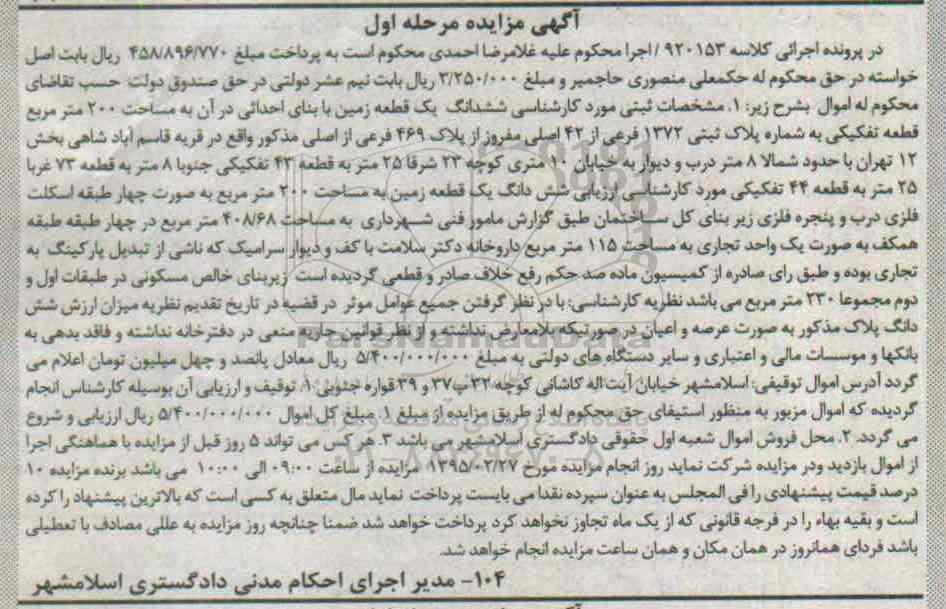 آگهی مزایده مرحله اول
در پرونده اجرائی کلاسه ۹۲۰۱۵۳ /اجرا محکوم علیه غلامرضا احمدی محکوم است به پرداخت مبلغ ۴۵۸/۸۹۶/۷۷۰ ریال بابت اصل
خواسته در حق محکوم له حکمعلی منصوری حاجمیر و مبلغ ۳/۲۵۰/۰۰۰ ریال بابت نیم عشر دولتی در حق صندوق دولت حسب تقاضای
محکوم له اموال بشرح زیر: ۱. مشخصات ثبتی مورد کارشناسی ششدانگ یک قطعه زمین با بنای احداثی در آن به مساحت ۲۰۰ متر مربع
قطعه تفکیکی به شماره پلاک ثبتی ۱۳۷۲ فرعی از ۴۲ اصلی مفروز از پلاک ۴۶۹ فرعی از اصلی مذکور واقع در قریه قاسم آباد شاهی بخش
۱۲ تهران با حدود شمالا ۸ متر درب و دیوار به خیابان ۱۰ متری کوچه ۲۳ شرقا ۲۵ متر به قطعه ۴۳ تفکیکی جنوبا ۸ متر به قطعه ۷۳ غربا
۲۵ متر به قطعه ۴۴ تفکیکی مورد کارشناسی ارزیابی شش دانگ یک قطعه زمین به مساحت ۲۰۰ متر مربع به صورت چهار طبقه اسکلت
فلزی درب و پنجره فلزی زیر بنای کل ساختمان طبق گزارش مامور فنی شهرداری به مساحت ۴۰۸/۶۸ متر مربع در چهار طبقه طبقه
همکف به صورت یک واحد تجاری به مساحت ۱۱۵ متر مربع داروخانه دکتر سلامت با کف و دیوار سرامیک که ناشی از تبدیل پارکینگ به
تجاری بوده و طبق رای صادره از کمیسیون ماده صد حکم رفع خلاف صادر و قطعی گردیده است زیربنای خالص مسکونی در طبقات اول و
دوم مجموعا ۲۳۰ متر مربع می باشد نظریه کارشناسی: با در نظر گرفتن جمیع عوامل موثر در قضیه در تاریخ تقدیم نظریه میزان ارزش شش
دانگ پلاک مذکور به صورت عرصه و اعیان در صورتیکه بلامعارض نداشته و از نظر قوانین جاریه منعی در دفترخانه نداشته و فاقد بدهی به
بانکها و موسسات مالی و اعتباری و سایر دستگاه های دولتی به مبلغ ۵/۴۰۰/۰۰۰/۰۰۰ ریال معادل پانصد و چهل میلیون تومان اعلام می
گردد آدرس اموال توقیفی: اسلامشهر خیابان آیت اله کاشانی کوچه ۳۲ پ ۳۷ و ۳۹ قواره جنوبی ۱. توقیف و ارزیابی آن بوسیله کارشناس انجام
گردیده که اموال مزبور به منظور استیفای حق محکوم له از طریق مزایده از مبلغ ۱. مبلغ کل اموال ۵/۴۰۰/۰۰۰/۰۰۰ ریال ارزیابی و شروع
می گردد. ۲. محل فروش اموال شعبه اول حقوقی دادگستری اسلامشهر می باشد ۳. هر کس می تواند ۵ روز قبل از مزایده با هماهنگی اجرا
از اموال بازدید ودر مزایده شرکت نماید روز انجام مزایده مورخ ۱۳۹۵/۰۲/۲۷ مزایده از ساعت ۰۹:۰۰ الی ۱۰:۰۰ می باشد برنده مزایده ۱۰
درصد قیمت پیشنهادی را فی المجلس به عنوان سپرده نقدا می بایست پرداخت نماید مال متعلق به کسی است که بالاترین پیشنهاد را کرده
است و بقیه بهاء را در فرجه قانونی که از یک ماه تجاوز نخواهد کرد پرداخت خواهد شد ضمنا چنانچه روز مزایده به عللی مصادف با تعطیلی
باشد فردای همانروز در همان مکان و همان ساعت مزایده انجام خواهد شد.
۱۰۴- مدیر اجرای احکام مدنی دادگستری اسلامشهر
ParsNamadData